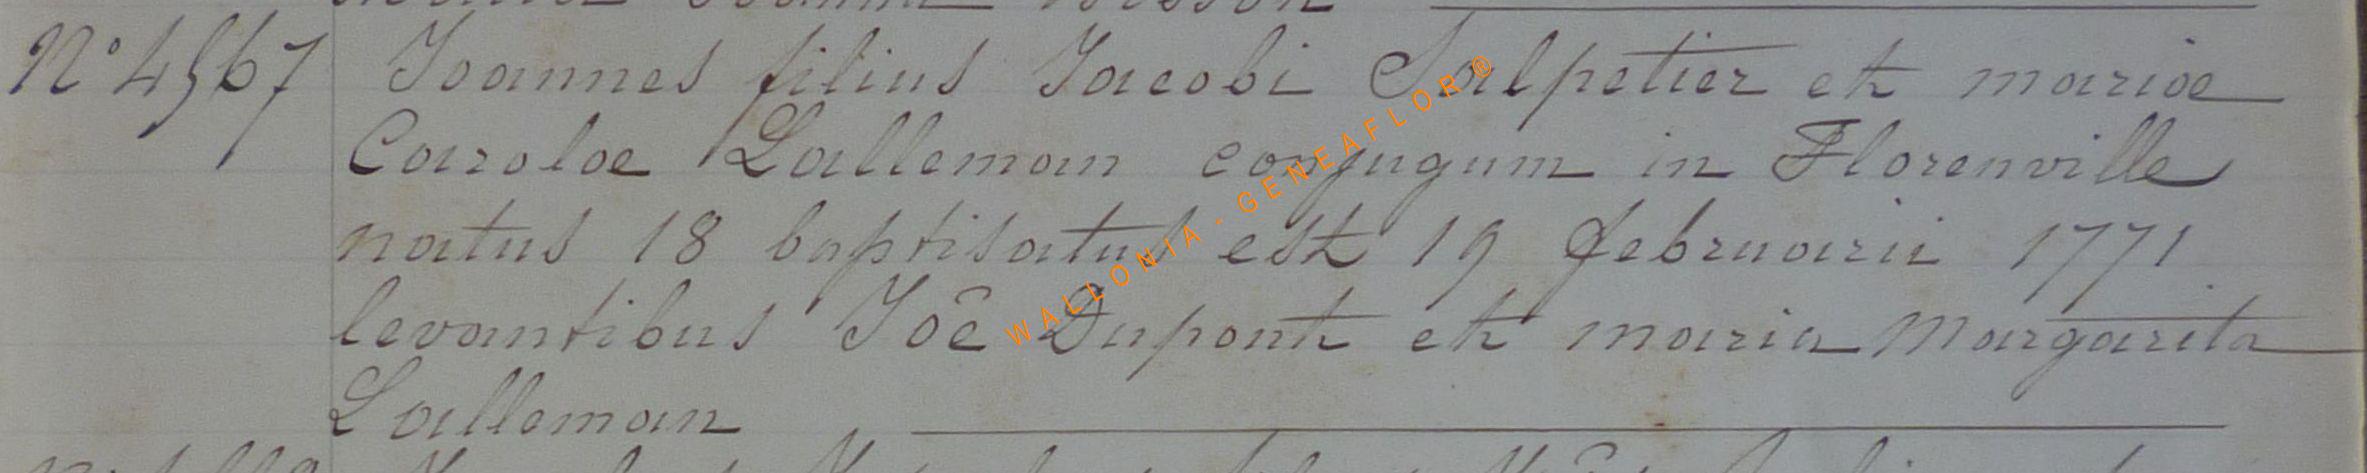 N° 4567 Joannes filius Jacobi Salpetier et mariae
Carolae Lalleman conjugum in Florenville
natus 18 baptisatus est 19 februarii 1771
levantibus Joê Dupont et maria Margarita
Lalleman
WALLONIA - GENEAFLOR®